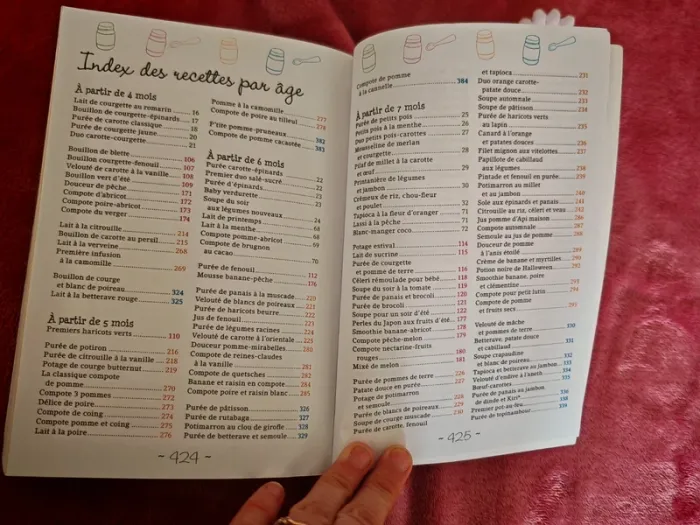 Index des recettes par âge
À partir de 4 mois
Lait de courgette au romarin 16
Bouillon de courgette-épinards 17
Purée de carotte classique 18
Purée de courgette jaune 20
Duo carotte-courgette 21
Bouillon de blette 106
Bouillon courgette-fenouil 107
Velouté de carotte à la vanille 108
Bouillon vert d'été 109
Douceur de pêche 171
Compote d'abricot 172
Compote poire-abricot 173
Compote du verger 174
Lait à la citrouille 214
Bouillon de carotte au persil 215
Lait à la verveine 268
Première infusion
à la camomille 269
Bouillon de courge
et blanc de poireau 324
Lait à la betterave rouge 325
À partir de 5 mois
Premiers haricots verts 110
Purée de potiron 216
Purée de citrouille à la vanille 218
Potage de courge butternut 219
La classique compote
de pomme 270
Compote 3 pommes 272
Délice de poire 273
Compote de coing 274
Compote pomme et coing 275
Lait à la poire 276
Pomme à la camomille 277
Compote de poire au tilleul 278
P'tite pomme-pruneaux 382
Compote de pomme cacaotée 383
À partir de 6 mois
Purée carotte-épinards 22
Premier duo salé-sucré 22
Purée d'épinards 23
Baby verdurette 23
Soupe du soir
aux légumes nouveaux 24
Lait de printemps 68
Lait à la menthe 68
Compote pomme-abricot 69
Compote de brugnon
au cacao 70
Purée de fenouil 112
Mousse banane-pêche 176
Purée de panais à la moscade 220
Velouté de blancs de poireaux 221
Purée de haricots beurre 222
Jus de fenouil 223
Purée de légumes racines 224
Velouté de carotte à l'orientale 225
Douceur pomme-mirabelles 280
Compote de reines-claudes
à la vanille 281
Compote de quetsches 282
Banane et raisin en compote 284
Compote poire et raisin blanc 285
Purée de pâtisson 326
Purée de rutabaga 327
Potimarron au clou de girofle 328
Purée de betterave et semoule 329
~ 424 ~
Compote de pomme
à la cannelle 384
À partir de 7 mois
Purée de petits pois 25
Petits pois à la menthe 26
Duo petits pois-carottes 27
Mousseline de merlan
et courgette 28
Pilaf de millet à la carotte
et œuf 29
Printanière de légumes
et jambon 30
Crémeux de riz, chou-fleur
et poulet 32
Tapioca à la fleur d'oranger 71
Lassi à la pêche 71
Blanc-manger coco 72
Potage estival 114
Lait du sucrine 115
Purée de courgette
et pomme de terre 116
Céleri rémoulade pour bébé 118
Soupe du soir à la tomate 119
Purée de panais et brocoli 120
Purée de brocoli 121
Soupe pour un soir d'été 122
Perles du Japon aux fruits d'été 177
Smoothie banane-abricot 178
Compote pêche-melon 179
Compote nectarine-fruits
rouges 180
Mixé de melon 181
Purée de pommes de terre 226
Patate douce en purée 227
Potage de potimarron
et semoule 228
Purée de blancs de poireaux 229
Soupe de courge muscade 230
Purée de carotte, fenouil
et tapioca 231
Duo orange carotte-
patate douce 232
Soupe automnale 233
Soupe de pâtisson 234
Purée de haricots verts
au lapin 235
Canard à l'orange
et patates douces 236
Filet mignon aux vitelottes 237
Papillote de cabillaud
aux légumes 238
Pintade et fenouil en purée 239
Potimarron au millet
et au jambon 240
Sole aux épinards et panais 241
Citrouille au riz, céleri et veau 242
Jus pomme d'Api maison 286
Compote automnale 287
Semoule au jus de pomme 288
Douceur de pomme
à l'anis étoilé 289
Crème de banane et myrtilles 290
Potion noire de Halloween 292
Smoothie banane, poire
et clémentine 293
Compote pour petit lutin 294
Compote de pomme
et fruits secs 295
Velouté de mâche
et pommes de terre 330
Betterave, patate douce
et cabillaud 331
Soupe crapaudine
et blanc de poireau 332
Tapioca et betterave au jambon 333
Velouté d'endive à l'aneth 334
Bœuf-carottes 335
Purée de panais au jambon
de dinde et Kiri® 336
Premier pot-au-feu 338
Purée de topinambour 339
~ 425 ~